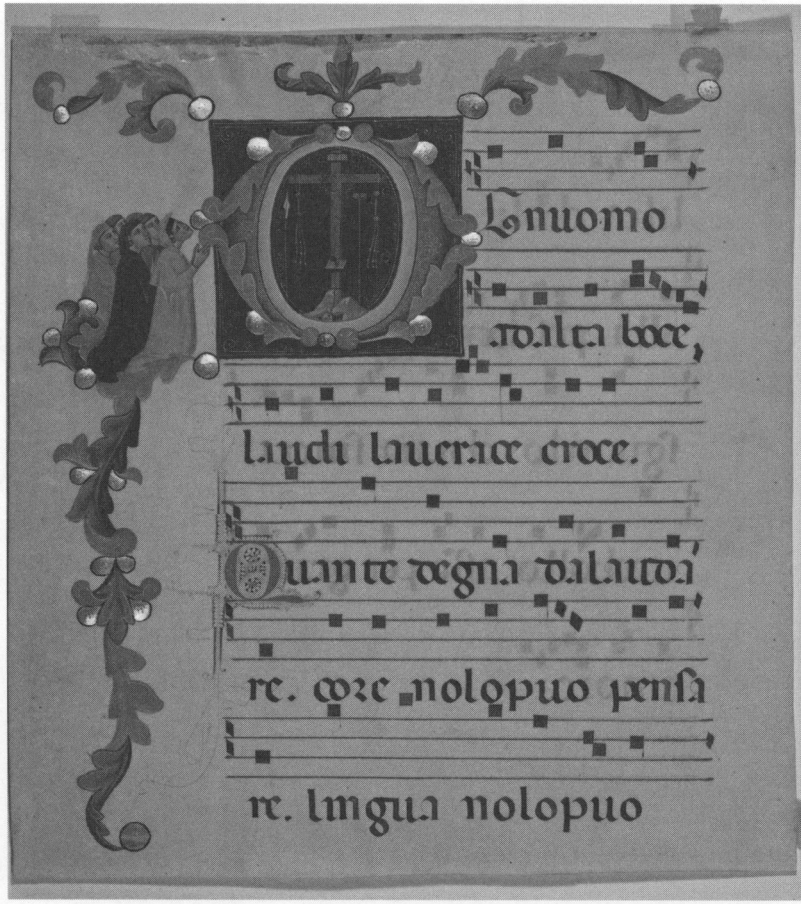 Gnuomo
adalta boce,
laudi lauerace croce.
Quante degna dalauda
re. core nolopuo pensa
re. lingua nolopuo